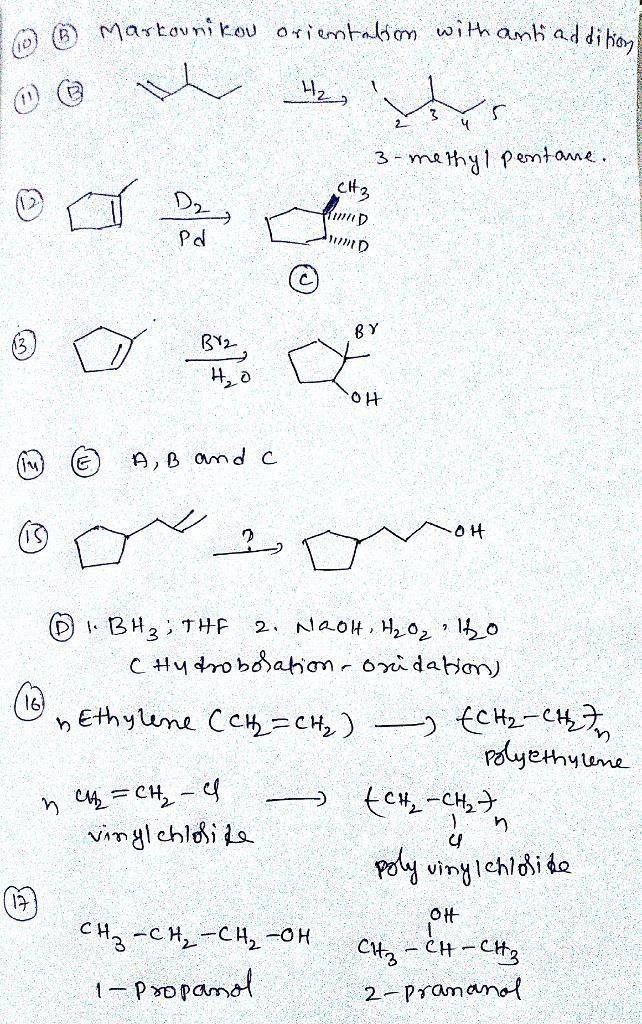 (10) (B) Markovnikov orientation with anti addition
(11) (B) H2 1 2 3 4 5
3-methyl pentane.
(12) D2 Pd CH3 D D
(C)
(13) Br2 H2O Br OH
(14) (E) A, B and C
(15) ? OH
(D) 1. BH3; THF 2. NaOH, H2O2, H2O
(Hydroboration-oxidation)
(16) n Ethylene (CH2=CH2) → (CH2-CH2)n
polyethylene
n CH2=CH2-Cl → (CH2-CH2)n
Cl
vinylchloride
poly vinylchloride
(17)
OH
CH3-CH2-CH2-OH CH3-CH-CH3
1-propanol 2-prananol